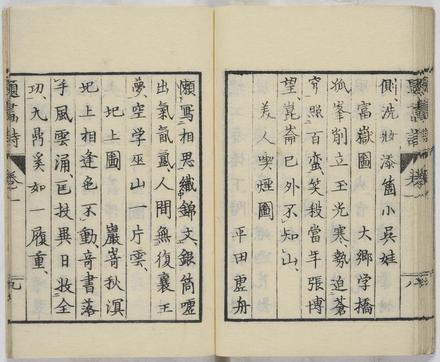 側、洗妝添箇小吳娃
富嶽圖　大鄉学橋
孤峯削立玉光寒、勢迫蒼
穹照百蠻、笑殺當年張博
望、崑崙已外不知山、
美人喫煙圖
平田虛舟
懶寫相思織錦文、銀筒噓
出氣氤氳、人間無復襄王
夢、空学巫山一片雲、
圯上圖　巖嵜秋溟
圯上相逢色不動、奇書落
手風雲涌、匡扶異日收全
功、九鼎奚如一履重、
題畫詩　卷一　九